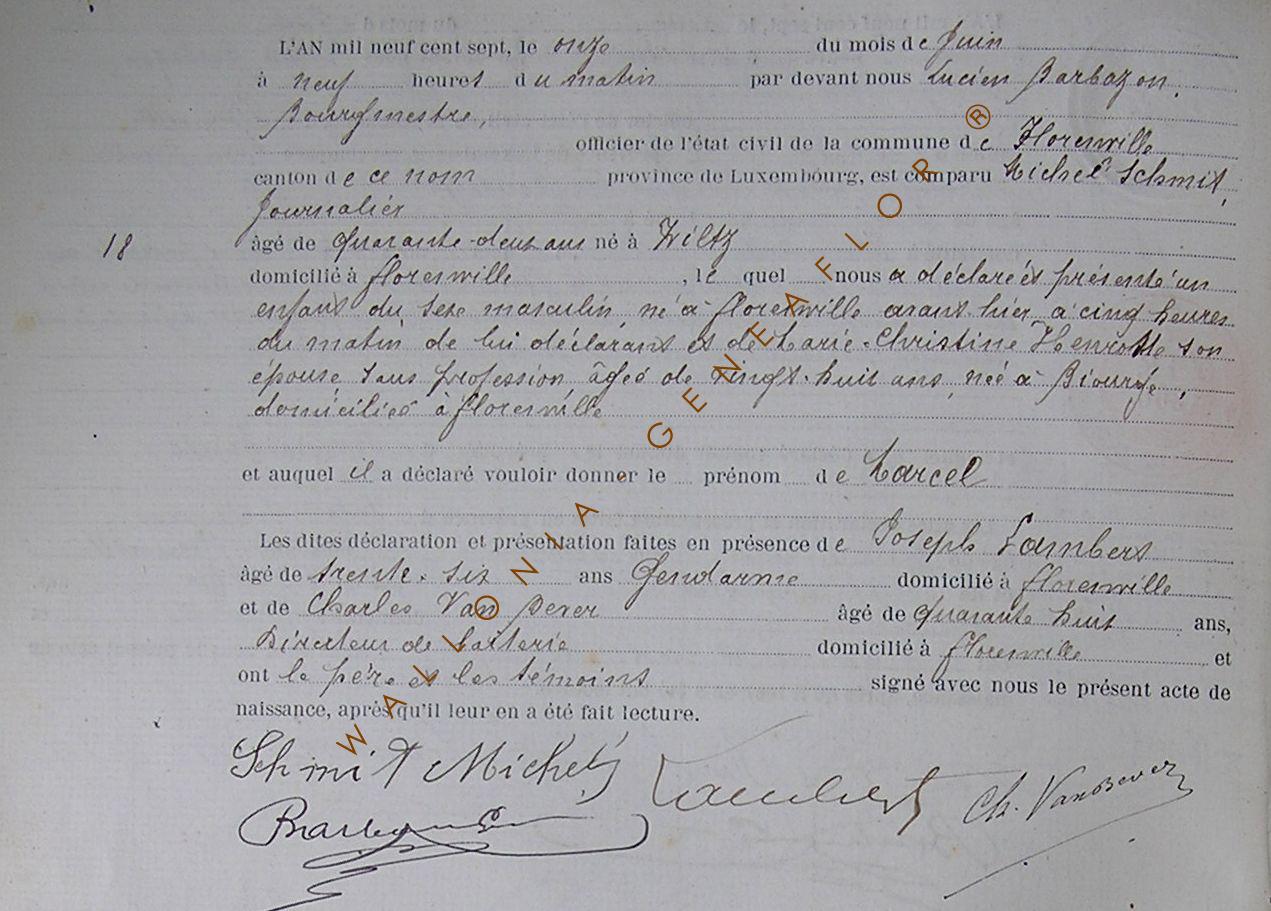 L'AN mil neuf cent sept, le onze du mois de Juin
à neuf heures du matin par devant nous Lucien Barbazon,
Bourgmestre,
officier de l'état civil de la commune de Florenville
canton de ce nom province de Luxembourg, est comparu Michel Schmit,
Journalier
18 âgé de quarante-deux ans né à Wiltz
domicilié à florenville, lequel nous a déclaré et présenté un
enfant du sexe masculin, né à florenville avant hier à cinq heures
du matin de lui déclarant et de Marie-Christine Henrotte son
épouse sans profession, âgée de vingt-huit ans, née à Biourge,
domiciliée à florenville
et auquel il a déclaré vouloir donner le prénom de Marcel
Les dites déclaration et présentation faites en présence de Joseph Lambert
âgé de trente-six ans Gendarme domicilié à florenville
et de Charles Van Bever âgé de quarante huit ans,
Directeur de Laiterie domicilié à florenville et
ont le père et les témoins signé avec nous le présent acte de
naissance, après qu'il leur en a été fait lecture.
Schmit Michel Lambert Ch. Vanbever
Barbazon
WALLONIA-GENEAFLOR ®